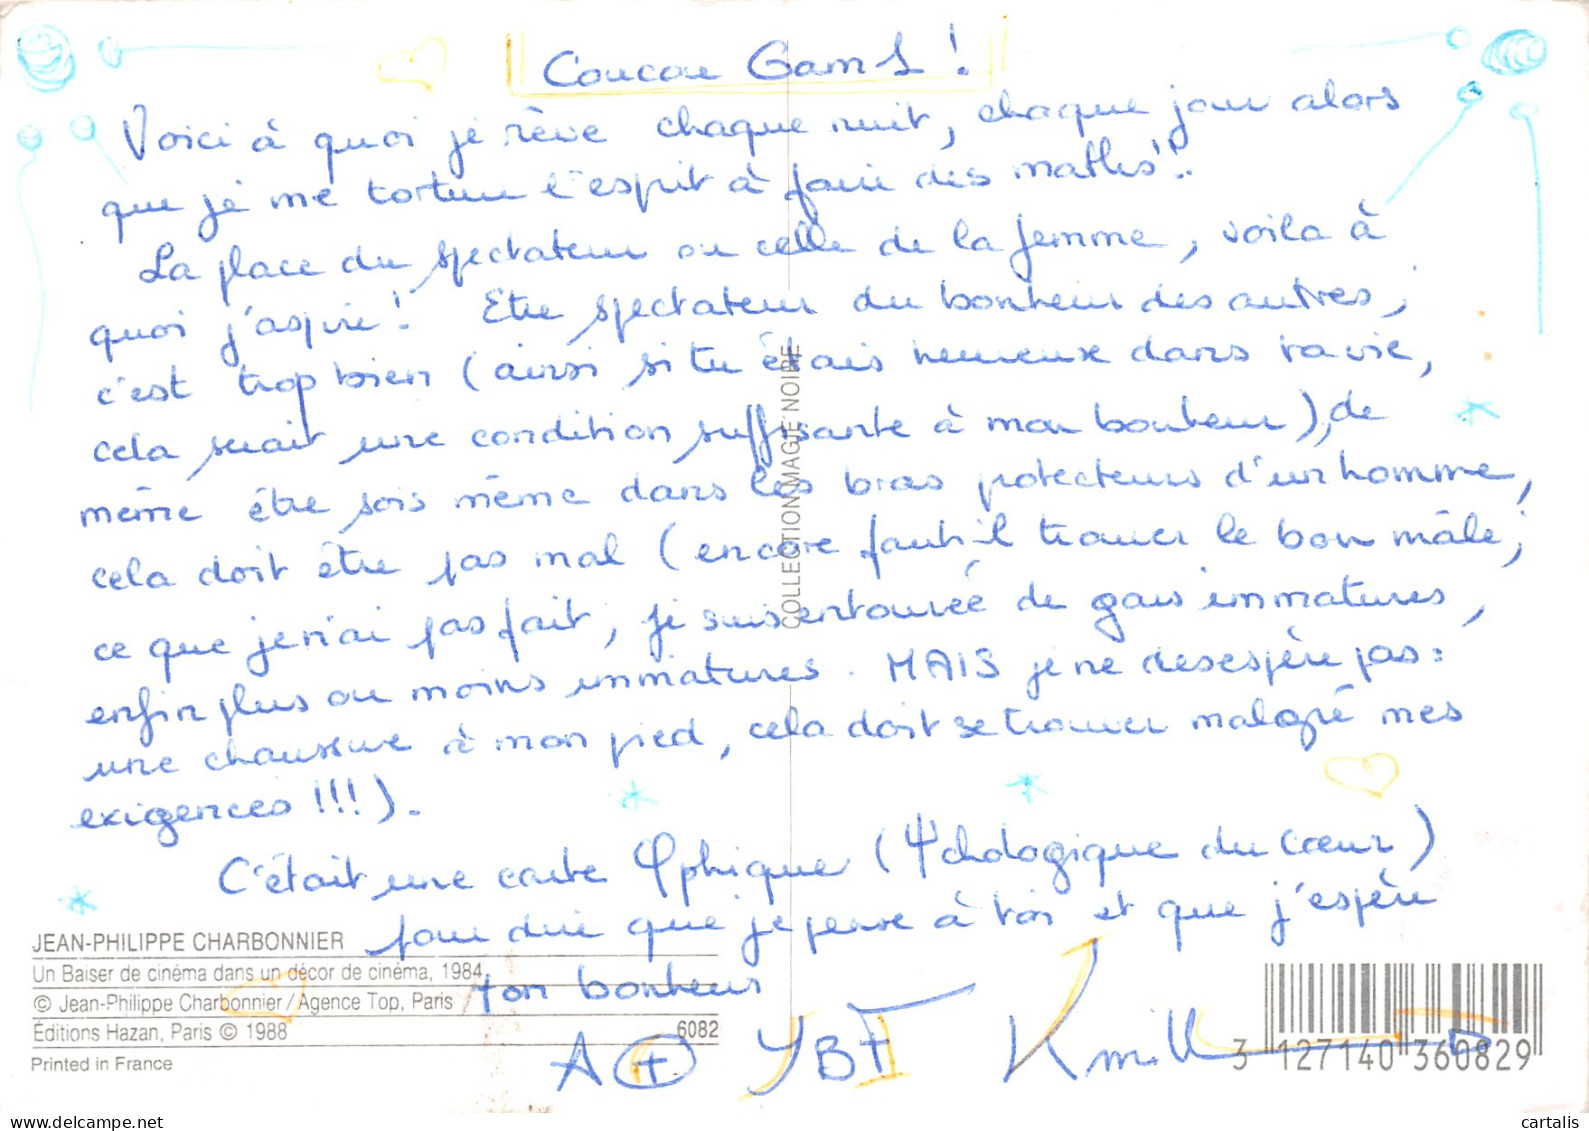 Coucou Gam1 !
Voici à quoi je rêve chaque nuit, chaque jour alors
que je me torture l'esprit à faire des maths !.
La place du spectateur ou celle de la femme, voila à
quoi j'aspire ! Etre spectateur du bonheur des autres,
c'est trop bien (ainsi si tu étais heureuse dans ta vie,
cela serait une condition suffisante à mon bonheur), de
même être sois même dans les bras protecteurs d'un homme,
cela doit être pas mal (encore faut-il trouver le bon mâle ;
ce que je n'ai pas fait, je suis entourée de gars immatures,
enfin plus ou moins immatures. MAIS je ne desespère pas :
une chaussure à mon pied, cela doit se trouver malgré mes
exigences !!!).
C'était une carte φphique (Ψchologique du cœur)
pour dire que je pense à toi et que j'espère
ton bonheur
A (+) YBF Kmill
COLLECTION MAGIE NOIRE
JEAN-PHILIPPE CHARBONNIER
Un Baiser de cinéma dans un décor de cinéma, 1984
© Jean-Philippe Charbonnier / Agence Top, Paris
Éditions Hazan, Paris © 1988 6082
Printed in France
3 127140 360829
cartalis